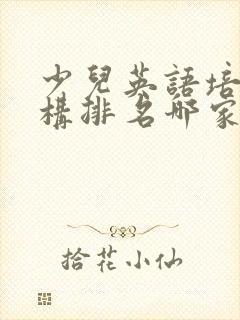 少兒英語培
構排名哪家
拾花小仙